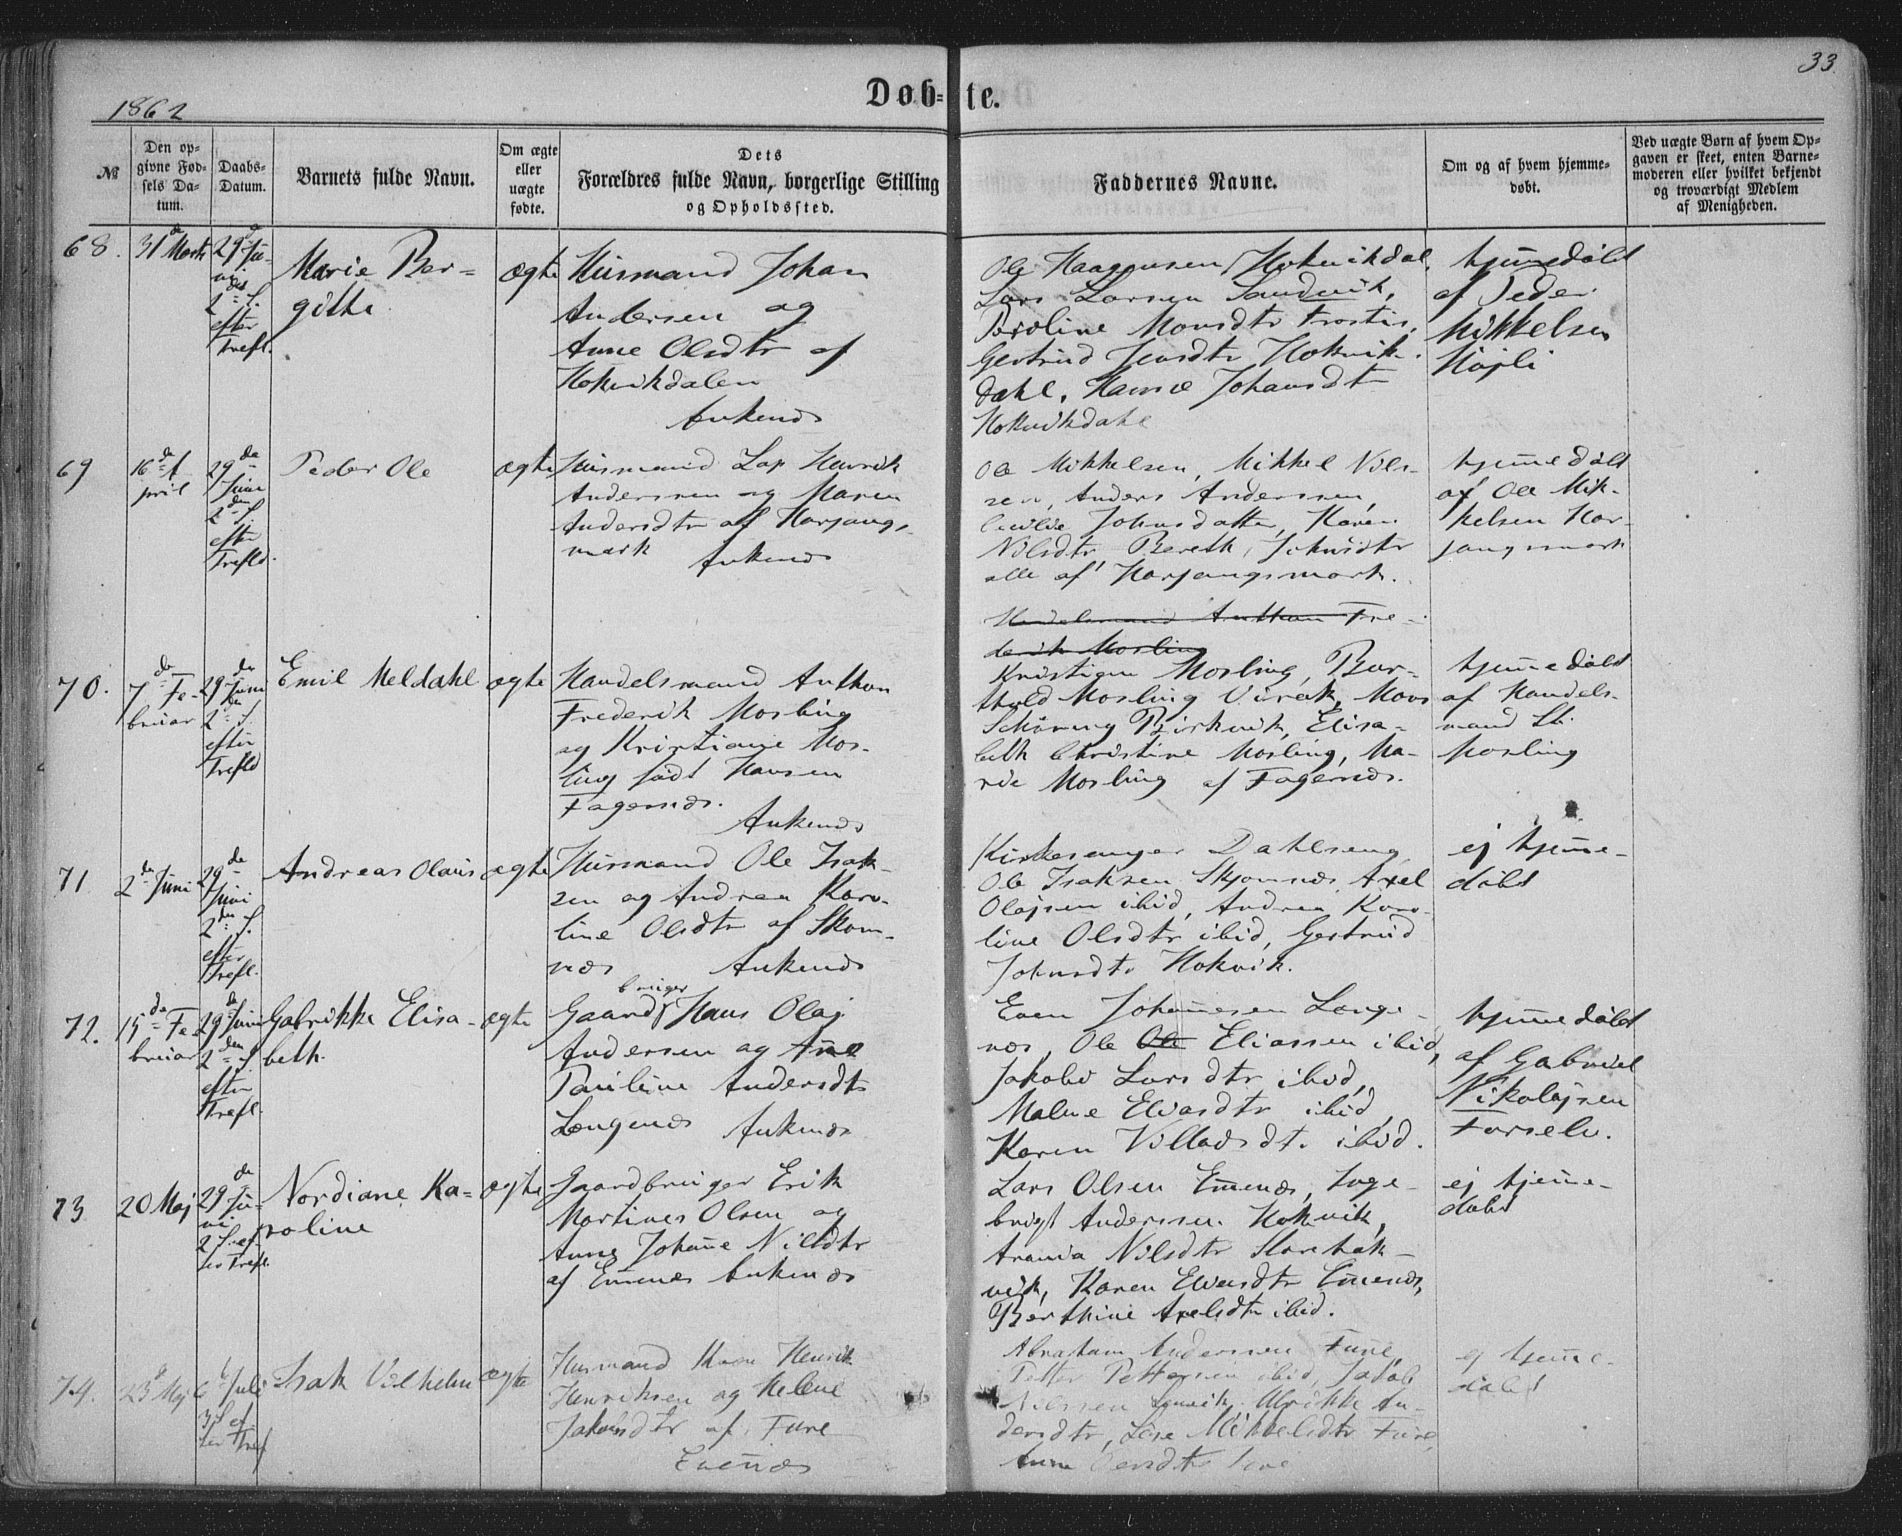 33
1862
Døb-te.
№
Den op-
givne Fød-
sels Da-
tum.
Daabs-
Datum.
Barnets fulde Navn.
Om ægte
eller
uægte
fødte.
Dets
Forældres fulde Navn, borgerlige Stilling
og Opholdssted.
Faddernes Navne.
Om og af hvem hjemme-
døbt.
Ved uægte Børn af hvem Op-
gaven er skeet, enten Barne-
moderen eller hvilket bekjendt
og troværdigt Medlem
af Menigheden.
68.
31 Marts
29de Ju-
ni
2den S.
efter
Trefl.
Marie Ber-
githe
ægte
Husmand Johan
Andersen og
Anne Olsdtr af
Hokvikdalen
Ankenæs
Ole Haagensen Hokvikdal,
Lars Larsen Sandvik,
Monsdtr
Gertrud Jensdtr Hokvik-
dahl, Johansdtr
Hokvikdahl
hjemedøbt
af Peder
Mikkelsen
69
16de A
pril
29de
Juni
2den S.
efter
Trefld.
Peder Ole
ægte
Husmand Lap Henrik
Anderssen og Maren
Andersdtr af Harjangs-
mark
Ankenæs
Ole Mikkelsen, Mikkel Nils-
sen, Anders Anderssen,
Johnsdatter, Karen
Nilsdtr, Bereth Johnsdtr
alle af Harjangsmark.
hjemedøbt
af Ole Mik-
kelsen Har-
jangsmark
70.
7de Fe-
bruar
29de Juni
2den S.
efter
Trefld
Emil Meldahl
ægte
Handelsmand Anthon
Frederik Mosling
og Kristiane Mos-
ling født Hansen
Fagernæs.
Ankenæs
Handelsmand Anthon Fre-
derik Mosling
Kristian Mosling, Bar-
thold Mosling Virak, Mons
Schjöning Birkvik, Elisa-
beth Christine Mosling, Ma-
rie Mosling af Fagernæs.
hjemedøbt
af Handels-
mand
Mosling
71
2den Juni
29de
Juni
2den S.
efter
Trefl.
Andreas Olaus
ægte
Husmand Ole Isak-
sen og Andrea Karo-
line Olsdtr af Skom-
næs
Ankenæs
Kirkesanger Dahlseng
Ole Isaksen Skjomnæs, Axel
Olajsen ibid, Andrea Karo-
line Olsdtr ibid, Gertrud
Johnsdtr Hokvik.
ej hjeme-
døbt
72.
15de Fe
bruar
29de Juni
2den S.
efter
Trefl.
Gabrikke Elisa-
beth.
ægte
bruger
Gaard Hans Olaj
Andersen og Ane
Pauline Andersdtr
Lengenæs
Ankenæs
Even Johannesen Lenge-
næs, Ole Ole Eliassen ibid,
Jakobe Larsdtr ibid,
Malene Elvasdtr ibid,
Karen Villadsdtr ibid.
hjemedøbt
af Gabriel
Nikolajsen
Forselv.
73
20 Maj
29de Ju-
ni
2 S. ef-
ter Trefl.
Nordiane Ka-
roline
ægte
Gaardbruger Erik
Martines Olsen og
Anne Johanne Nilsdtr
af Emenæs Ankenæs
Lars Olsen Emenæs, Inge-
brigt Anderssen Hokvik,
Arania Nilsdtr Storhok-
vik, Karen Evensdtr Emenæs,
Berthine Axelsdtr ibid.
ej hjeme-
døbt
74.
23de Maj
6 Juli
3 S. ef-
ter Tref
Isak Vilhelm
ægte
Husmand Henrik
Henriksen og Helene
Jakobsdtr af Fure
Evenæs
Abraham Anderssen Fure,
Petter Pettersen ibid, Jakob
Nilssen Ulrikke An-
dersdtr, Lene Mikkelsdtr Fure,
Anne
ej hjeme-
døbt